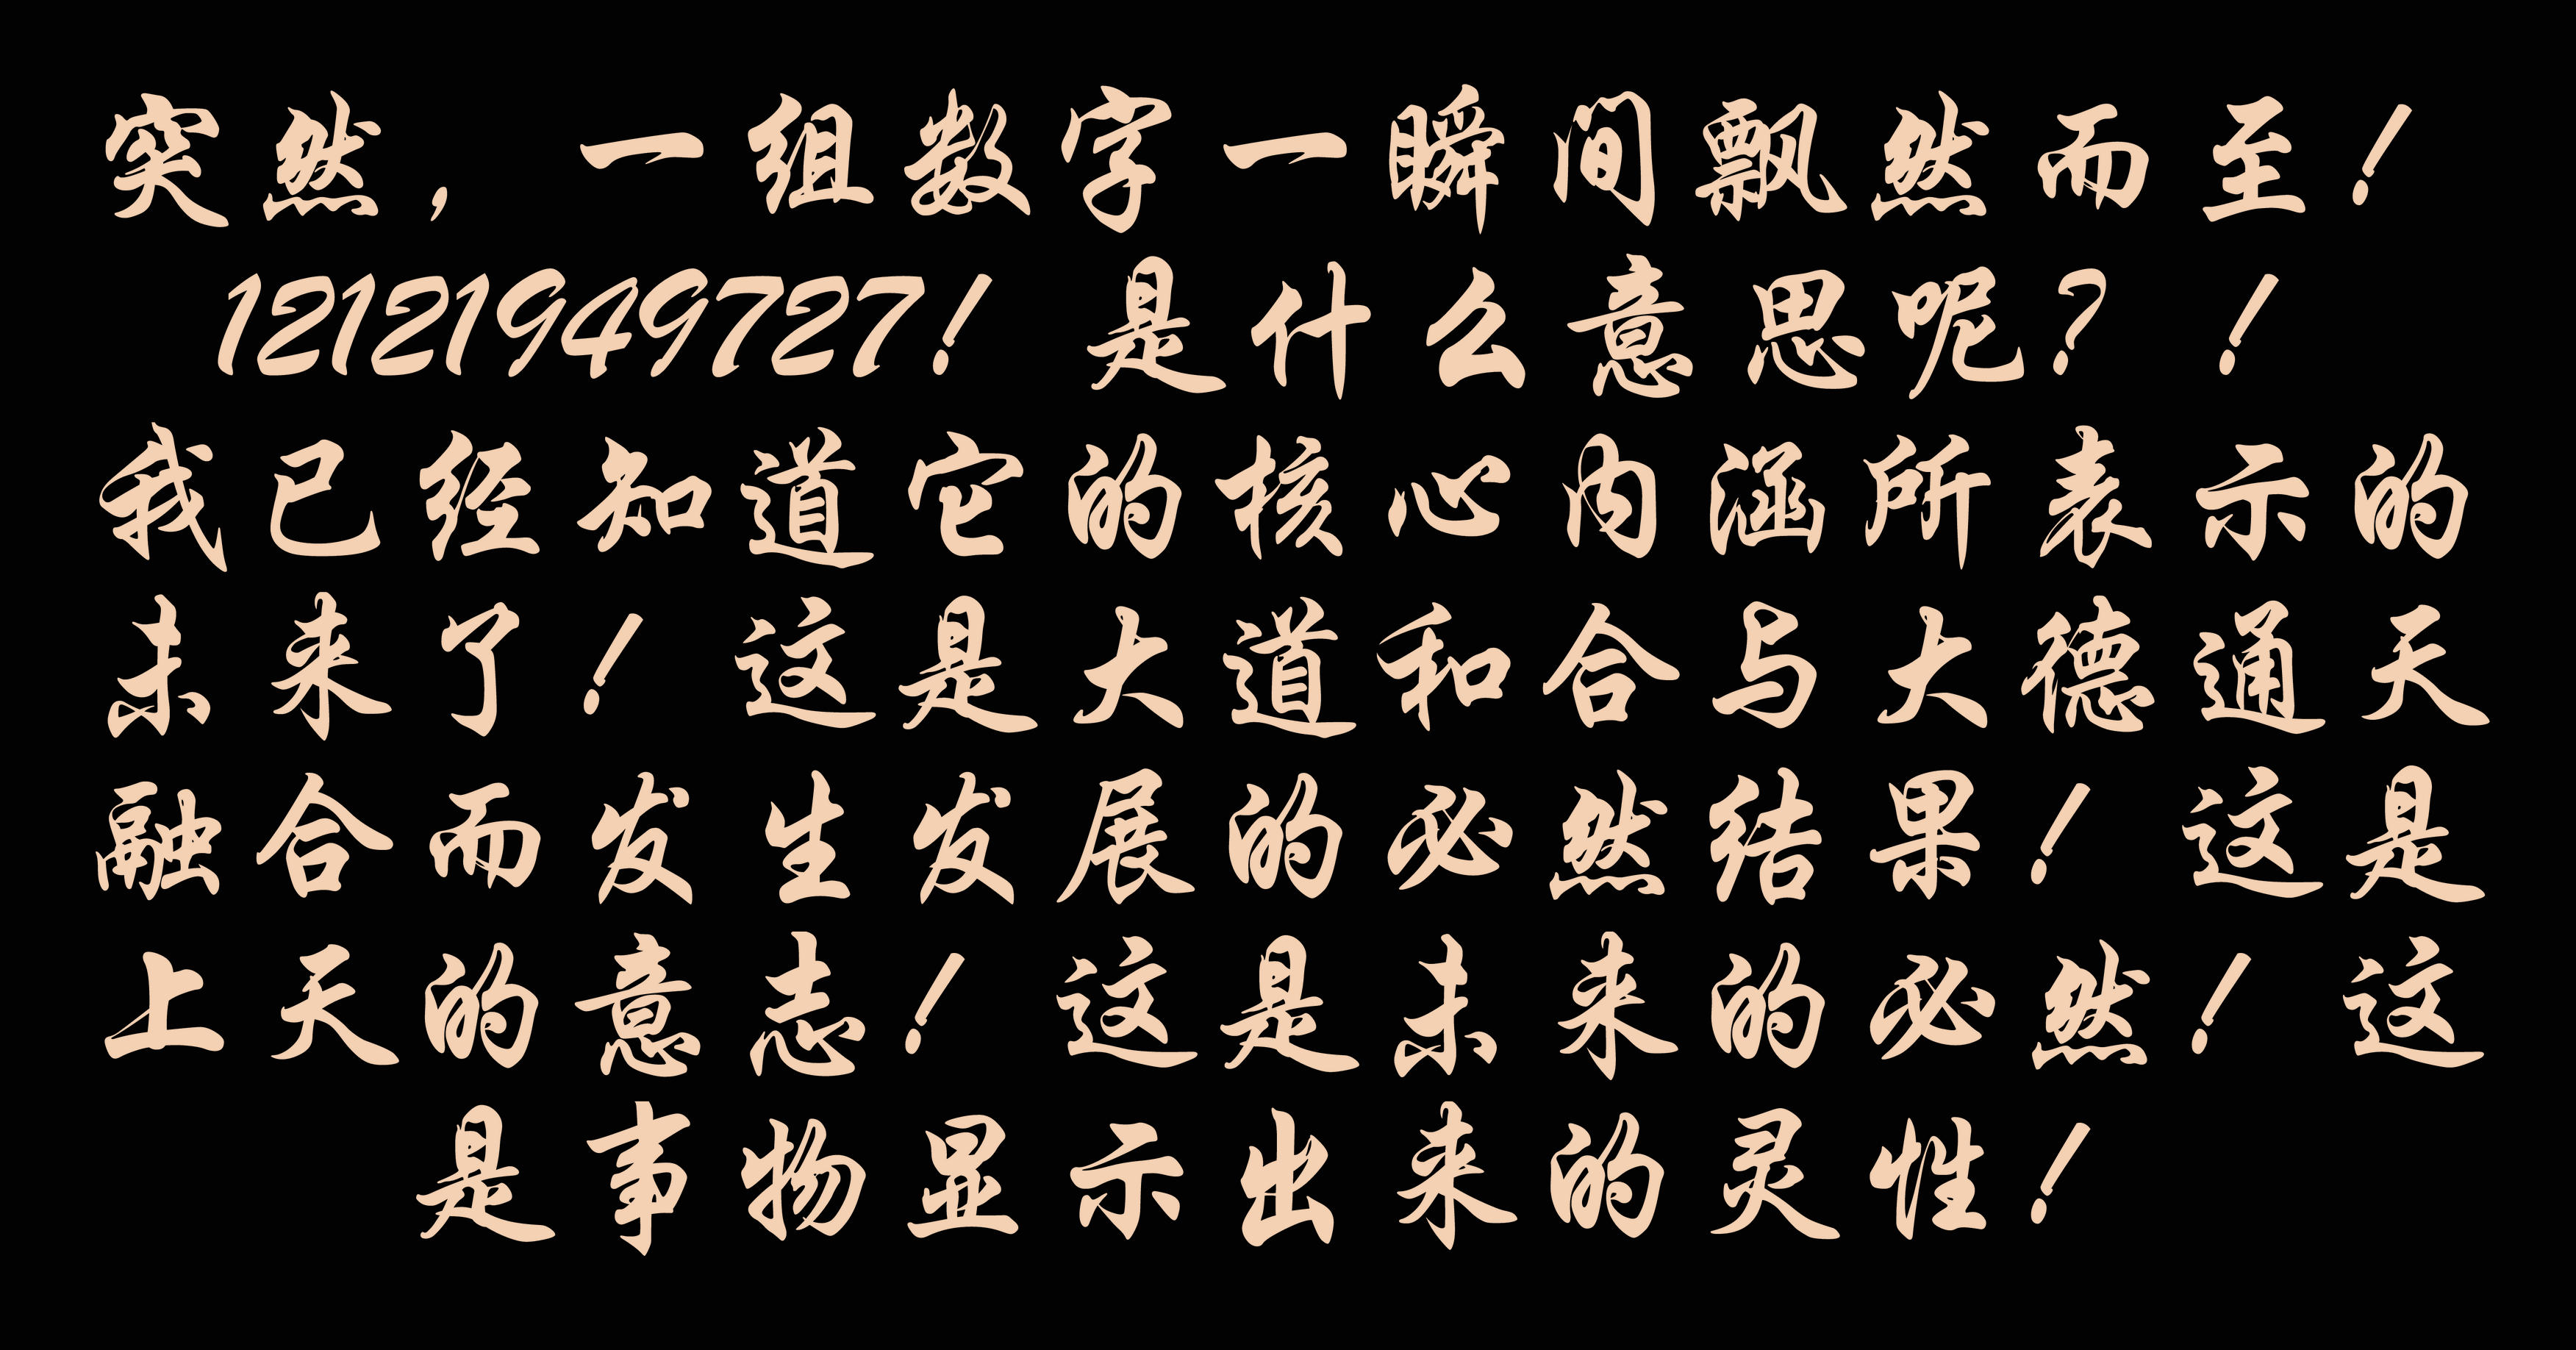 突然，一组数字一瞬间飘然而至！
12121949727！是什么意思呢？！
我已经知道它的核心内涵所表示的
未来了！这是大道和合与大德通天
融合而发生发展的必然结果！这是
上天的意志！这是未来的必然！这
是事物显示出来的灵性！